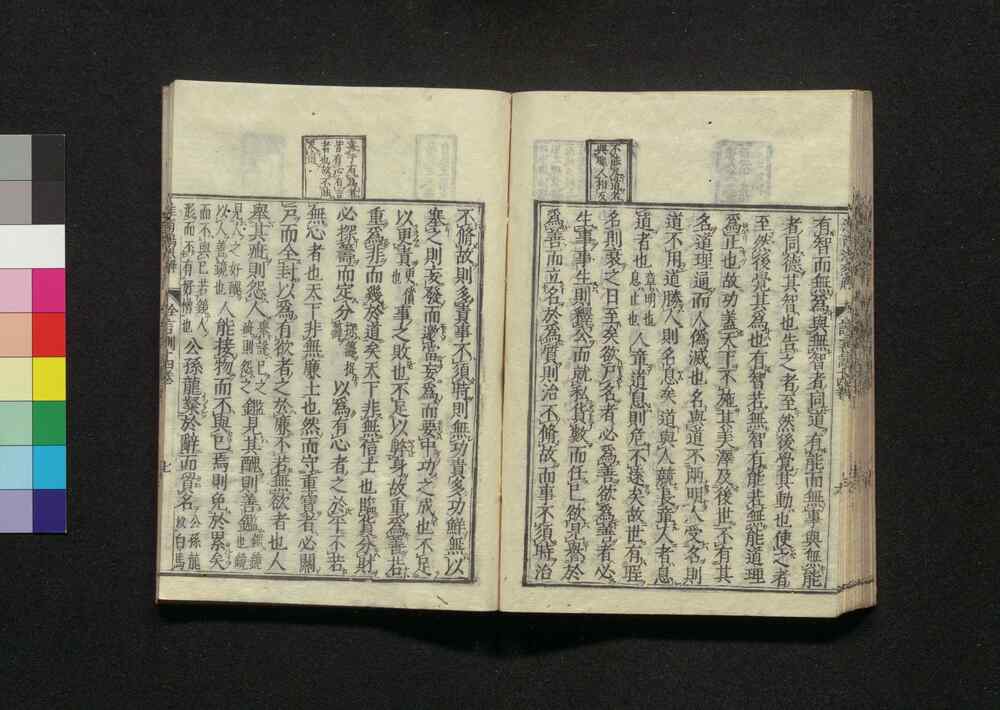 有智而無爲與無智者同道有能而無事與無能
者同德其智也告之者至然後覺其動也使之者
至然後覺其爲也有智若無智有能若無能道理
爲正也故功蓋天下不施其美澤及後世不有其
名道理通而人僞滅也名與道不兩明人受名則
道不用道勝人則名息矣道與人競長章人者息
道者也章明也息止也人章道息則危不遠矣故世有聖
名則衰之日至矣欲尸名者必爲善欲爲善者必
生事事生則釋公而就私背數而任己欲見譽於
爲善而立名於爲質則治不脩故而事不須時治
不脩故則多責事不須時則無功責多功鮮無以
塞之則妄發而邀當妄爲而要中功之成也不足
以更責更償也事之敗也不足以弊身故重爲善若
重爲非而幾於道矣天下非無信士也臨貨分財
必探籌而定分探籌捉籌以爲有心者之於平不若
無心者也天下非無廉士也然而守重寶者必關
戶而全封以爲有欲者之於廉不若無欲者也人
舉其疵則怨人鑑見其醜則善鑑
人能接物而不與己焉則免於累矣
公孫龍粲於辭而貿名公孫龍以白馬